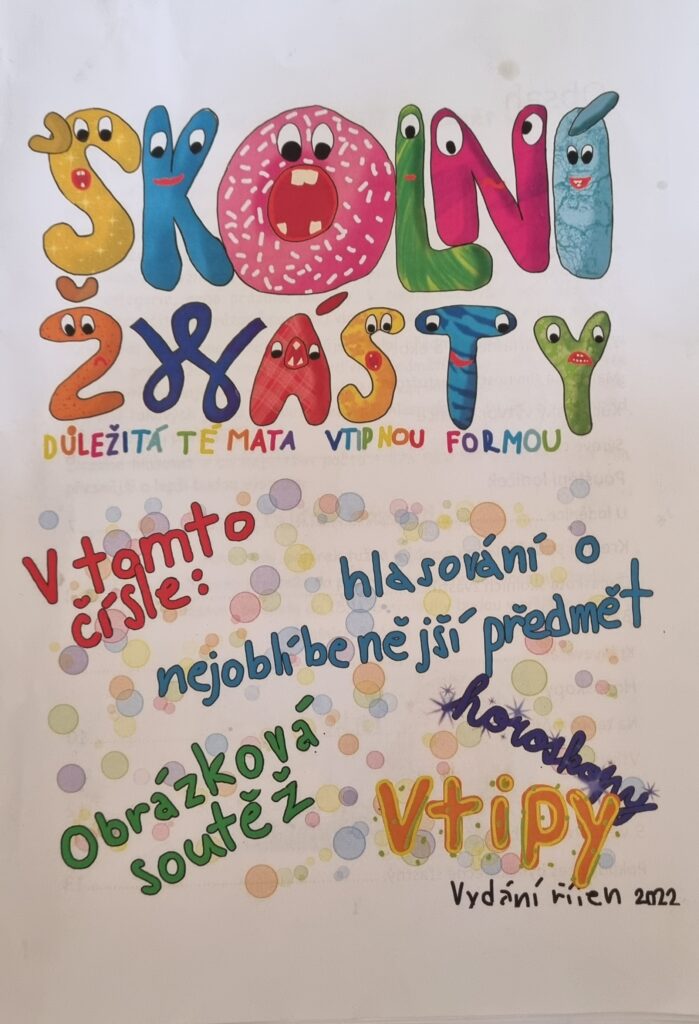 ŠKOLNÍ
ŽVÁSTY
DŮLEŽITÁ TÉMATA VTIPNOU FORMOU
V tomto
čísle:
hlasování o
nejoblíbenější předmět
horoskopy
Obrázková
soutěž
Vtipy
Vydání říjen 2022